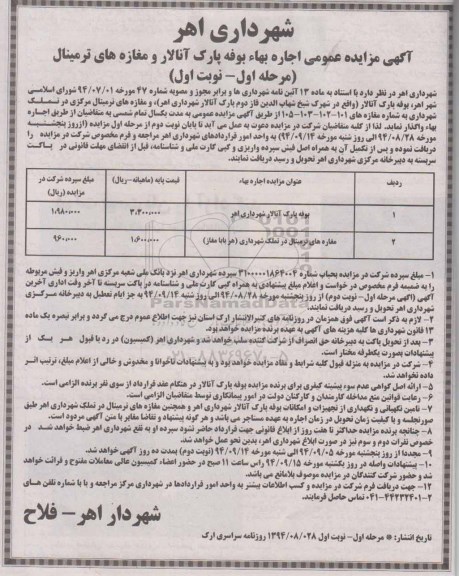 شهرداری اهر
آگهی مزایده عمومی اجاره بهاء بوفه پارک آنالار و مغازه های ترمینال
(مرحله اول- نوبت اول)
شهرداری اهر در نظر دارد با استناد به ماده ۱۳ آئین نامه شهرداری ها و برابر مجوز و مصوبه شماره ۴۷ مورخه ۹۴/۰۷/۰۱ شورای اسلامی
شهر اهر، بوفه پارک آنالار (واقع در شهرک شیخ شهاب الدین فاز دوم پارک آنالار شهرداری اهر)، و مغازه های ترمینال مرکزی در تملک
شهرداری به شماره مغازه های ۱۰۱-۱۰۲-۱۰۳-۱۰۵ از طریق آگهی مزایده عمومی به مدت یکسال تمام شمسی به متقاضیان از طریق اجاره
بهاء واگذار نماید. لذا از کلیه متقاضیان شرکت در مزایده دعوت به عمل می آید تا پایان نوبت دوم از مرحله اول مزایده (ازروز پنجشنبه
مورخه ۹۴/۰۸/۲۸ الی روز شنبه مورخه ۹۴/۰۹/۱۴) به واحد امور قراردادهای شهرداری اهر مراجعه و فرم مخصوص شرکت در مزایده را
دریافت نموده و پس از تکمیل آن به همراه اصل فیش سپرده واریزی و کپی کارت ملی و شناسنامه، قبل از انقضای مهلت قانونی در پاکت
سربسته به دبیرخانه مرکزی شهرداری اهر تحویل و رسید دریافت نمایند.
ردیف عنوان مزایده اجاره بهاء قیمت پایه (ماهیانه-ریال) مبلغ سپرده شرکت در مزایده (ریال)
۱ بوفه پارک آنالار شهرداری اهر ۳،۳۰۰،۰۰۰ ۱،۹۸۰،۰۰۰
۲ مغازه های ترمینال در تملک شهرداری (هر بابا مغاز) ۱،۶۰۰،۰۰۰ ۹۶۰،۰۰۰
۱- مبلغ سپرده شرکت در مزایده بحساب شماره ۳۱۰۰۰۰۰۱۸۶۴۰۰۴ سپرده شهرداری اهر نزد بانک ملی شعبه مرکزی اهر واریز و فیش مربوطه
را به ضمیمه فرم مخصوص در خواست و اعلام مبلغ پیشنهادی به همراه کپی کارت ملی و شناسنامه در پاکت سربسته تا آخر وقت اداری آخرین
آگهی (آگهی مرحله اول- نوبت دوم) از روز پنجشنبه مورخه ۹۴/۰۸/۲۸ الی روز شنبه ۹۴/۰۹/۱۴ به جز ایام تعطیل به دبیرخانه مرکزی
شهرداری اهر تحویل و رسید دریافت نمایند.
۲- لازم به ذکر است آگهی فوق همزمان در روزنامه های کثیرالانتشار ارک استان نیز جهت اطلاع عموم درج می گردد و برابر تبصره یک ماده
۱۳ قانون شهرداری ها کلیه هزینه های آگهی به عهده برنده مزایده خواهد بود.
۳- بعد از تحویل پاکت به دبیرخانه حق انصراف از شرکت کننده سلب خواهد شد و شهرداری اهر (کمیسیون) در رد یا قبول هر یک از
پیشنهادات بصورت یکطرفه مختار است.
۴- شرکت در مزایده به منزله قبول کلیه شرایط و مفاد مزایده خواهد بود و به پیشنهادات ناخوانا و مخدوش و خالی از اعلام مبلغ، ترتیب اثر
داده نخواهد شد.
۵- ارائه اصل گواهی عدم سوء پیشینه کیفری برای برنده مزایده بوفه پارک آنالار در هنگام عقد قرارداد از سوی نفر برنده الزامی است.
۶- رعایت قوانین منع مداخله کارمندان و کارکنان دولت در امور پیمانکاری توسط متقاضیان الزامی است.
۷- تامین نگهبانی و نگهداری از تجهیزات و امکانات بوفه پارک آنالار شهرداری اهر و همچنین مغازه های ترمینال در تملک شهرداری اهر طبق
صورتجلسه و با کیفیت زمان تحویل در زمان اجاره به عهده مستاجر می باشد و هر گونه پیشنهاد و تقاضا مغایر با متن آگهی مردود است.
۸- چنانچه برنده مزایده حداکثر تا هفت روز از ابلاغ قانونی جهت قرارداد حاضر نشود سپرده او به نفع شهرداری اهر ضبط خواهد شد. در
خصوص نفرات دوم و سوم نیز در صورت ابلاغ شهرداری اهر، بدین نحو عمل خواهد شد.
۹- مجددا از روز پنجشنبه مورخه ۹۴/۰۹/۰۵ الی شنبه مورخه ۹۴/۰۹/۱۴ (نوبت دوم) بمدت ده روز آگهی خواهد شد.
۱۰- پیشنهادات واصله در روز یکشنبه مورخه ۹۴/۰۹/۱۵ راس ساعت ۱۱ صبح در حضور اعضاء کمیسیون عالی معاملات مفتوح و قرائت خواهد
شد و حضور شرکت کنندگان در مزایده موصوف بلامانع می باشد.
۱۲- جهت دریافت فرم شرکت در مزایده و کسب اطلاعات بیشتر به واحد امور قراردادها در شهرداری مرکز مراجعه و یا با شماره تلفن های
۲-۰۴۱-۴۴۲۳۲۴۰۱ تماس حاصل فرمایند.
شهردار اهر- فلاح
تاریخ انتشار: * مرحله اول- نوبت اول ۱۳۹۴/۰۸/۰۲۸ روزنامه سراسری ارک
ParsNamadData
۰۲۱-۸۸۳۴۹۶۷۰-۵